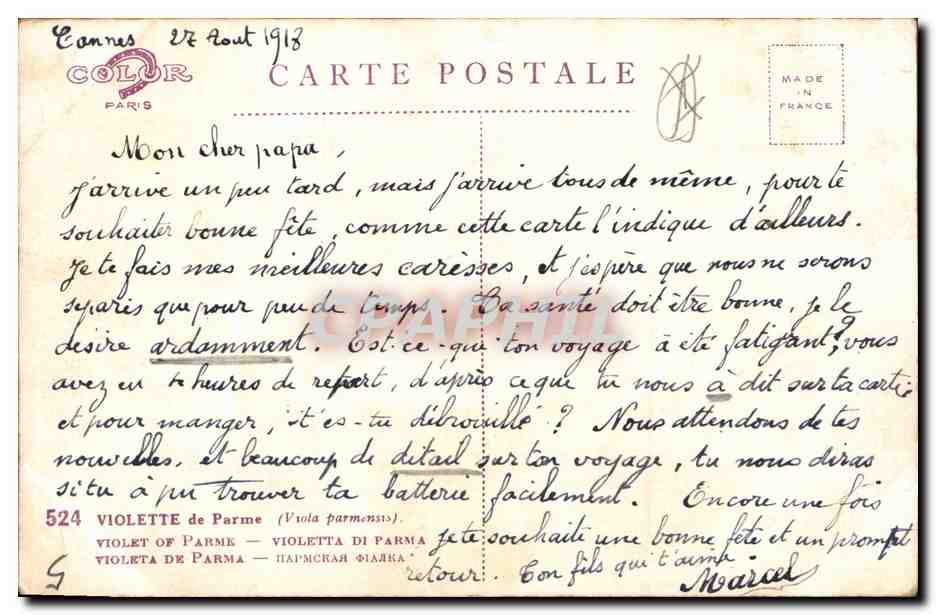 Cannes 27 Aout 1918
COLOR
PARIS
CARTE POSTALE
MADE
IN
FRANCE
Mon cher papa,
j'arrive un peu tard, mais j'arrive tous de même, pour te
souhaiter bonne fête, comme cette carte l'indique d'ailleurs.
Je te fais mes meilleures caresses, et j'espère que nous ne serons
séparés que pour peu de temps. Ta santé doit être bonne, je le
désire ardamment. Est-ce-que ton voyage à été fatigant? vous
avez eu heures de retart, d'après ce que tu nous à dit sur ta carte
et pour manger, t'es-tu débrouillé? Nous attendons de tes
nouvelles, et beaucoup de détail sur ton voyage, tu nous diras
si tu à pu trouver ta batterie facilement. Encore une fois
je te souhaite une bonne fête et un prompt
retour. Ton fils qui t'aime.
Marcel
524 VIOLETTE de Parme (Viola parmensis).
VIOLET OF PARME — VIOLETTA DI PARMA
VIOLETA DE PARMA — ПАРМСКАЯ ФІАЛКА
CPAPHIL